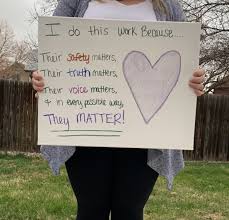 I do this work Because....
Their safety matters,
Their truth matters,
Their voice matters,
& in every possible way,
They MATTER!